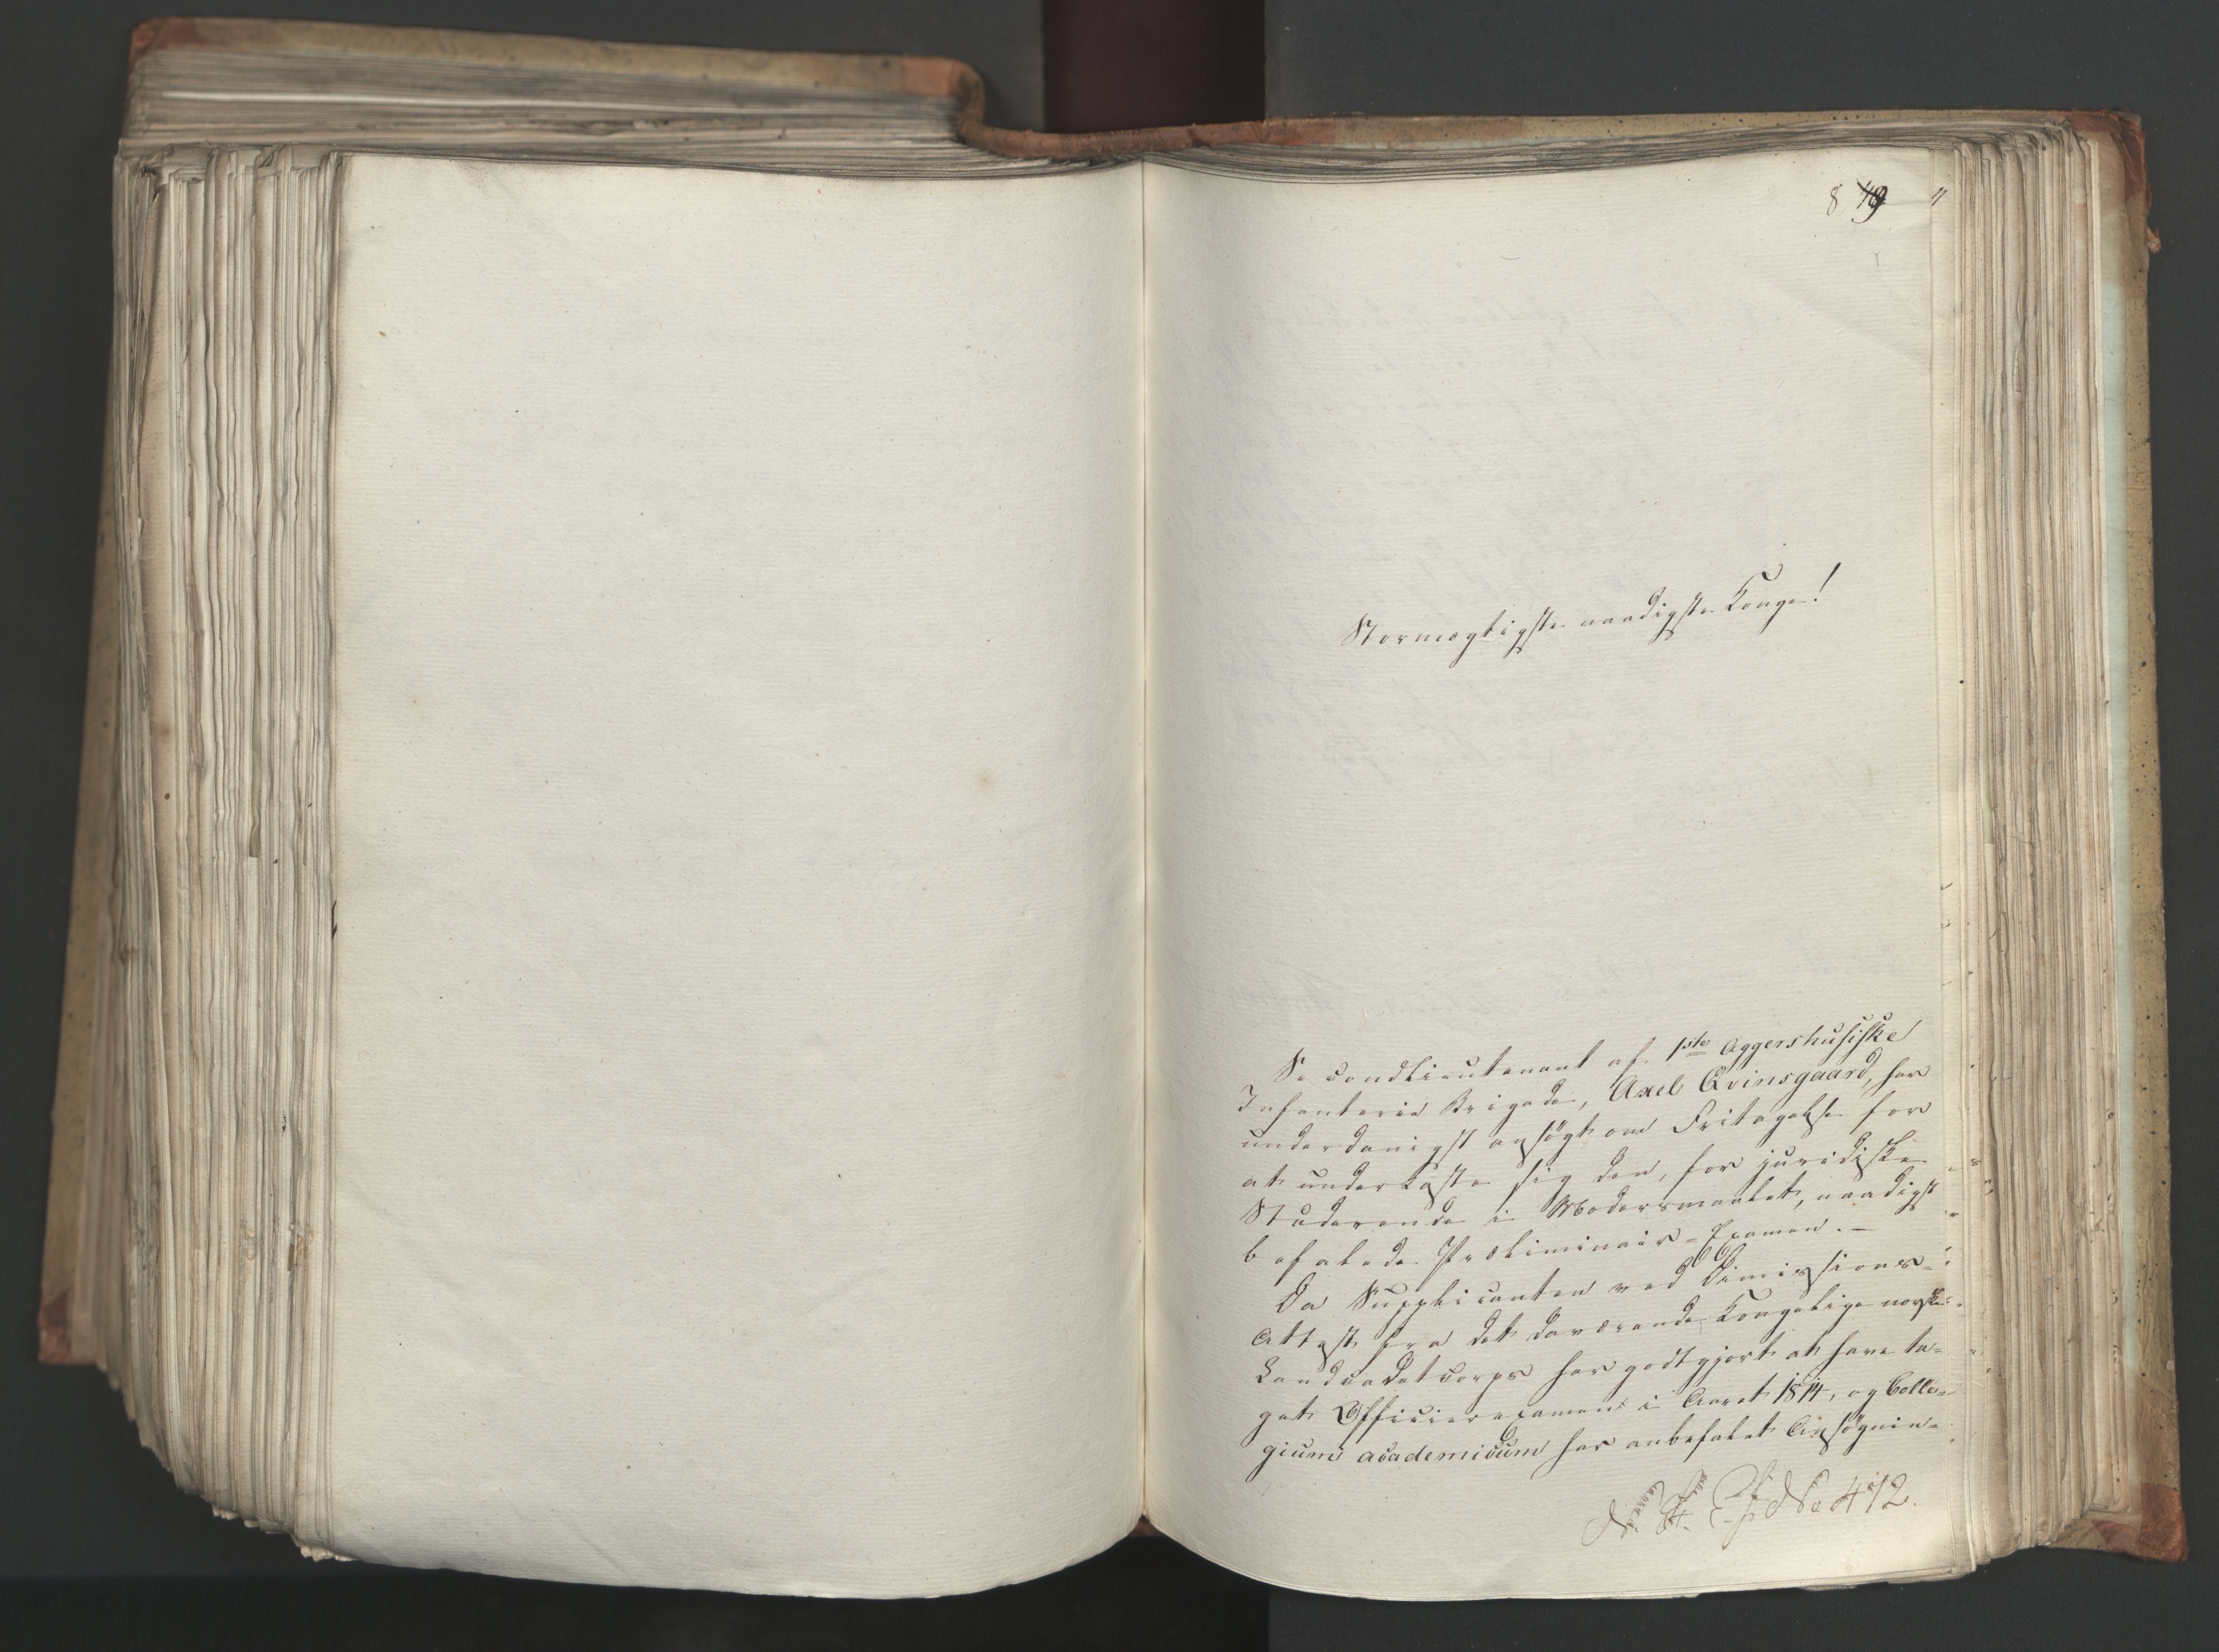 849
Stormægtigste naadigste Konge!
Secondlieutenant af 1ste Aggershusiske
Infanterie Brigade, Axel Qvinsgaard, har
underdanigst ansøgt om Fritagelse for
at underkaste sig den, for juridiske
Studerende i Modersmaalet, naadigst
befalede Præliminair-Examen. -
Da Supplicanten ved Dimissions-
Attest fra det daværende Kongelige norske
Landcadetcorps har godtgjort at have ta-
get Officierexamen i Aaret 1814, og Colle-
gium academicum har anbefalet Ansøgnin-
No 412.